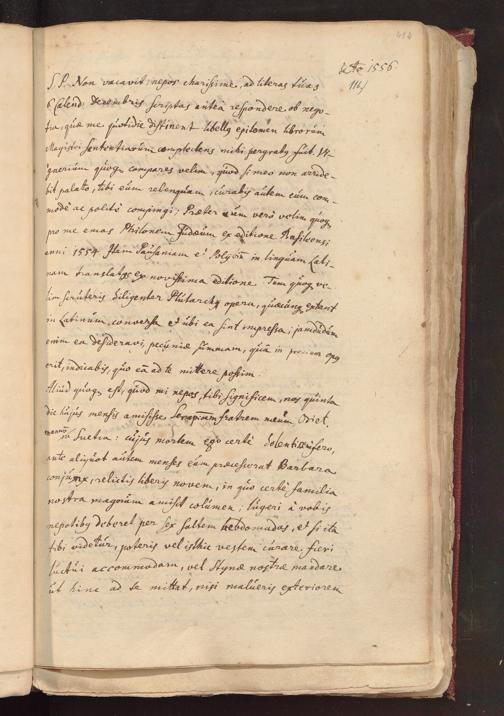 414
1556
114)
S. P. Non vacavit, nepos charissime, ad literas tuas
6 Calend: Decembris scriptas antea respondere ob nego-
tia, quæ me quotidie distinent libellg epitomen librorum
Magistri sententiarum complectens mihi pergratg fuit. Vi-
gnerium quoqz compares velim, quod si meo non arride-
bit palato, tibi eum relinquam, curabis autem eum com-
modè ac politè compingi; Præter eum verò velim quoqz
pro me emas Philonem Judæum ex editione Basileensi
anni 1554. Item Pausaniam et Polyæn in linguam Lati-
nam translatos ex novissima editione. Tem quoqz ve-
lim scruteris diligenter Plutarchi opera, quæcunqz extant
in Latinum conversa et ubi ea sint impressa; jamdudum
enim ea desideravi, pecuniæ summam, quâ in opg
erit, indicabis, quo eâ ad te mittere possim.
Aliud quoqz est, quod mi nepos, tibi significem, nos quinta
die hujus mensis amisisse fratrem meum
in Suetia: cujus mortem ego certè dolenter fero,
ante aliquot autem menses eum præcesserat Barbara
conjunx, relictis liberis novem, in quo certè familia
nostra magnum amisit columen; lugeri à vobis
nepotibg deberet per sex saltem hebdomadas, et si ita
tibi videtur, poteris vel isthic vestem curare fieri
luctui accommodam, vel Stynæ nostræ mandare
ut hinc ad te mittat, nisi malueris exteriorem